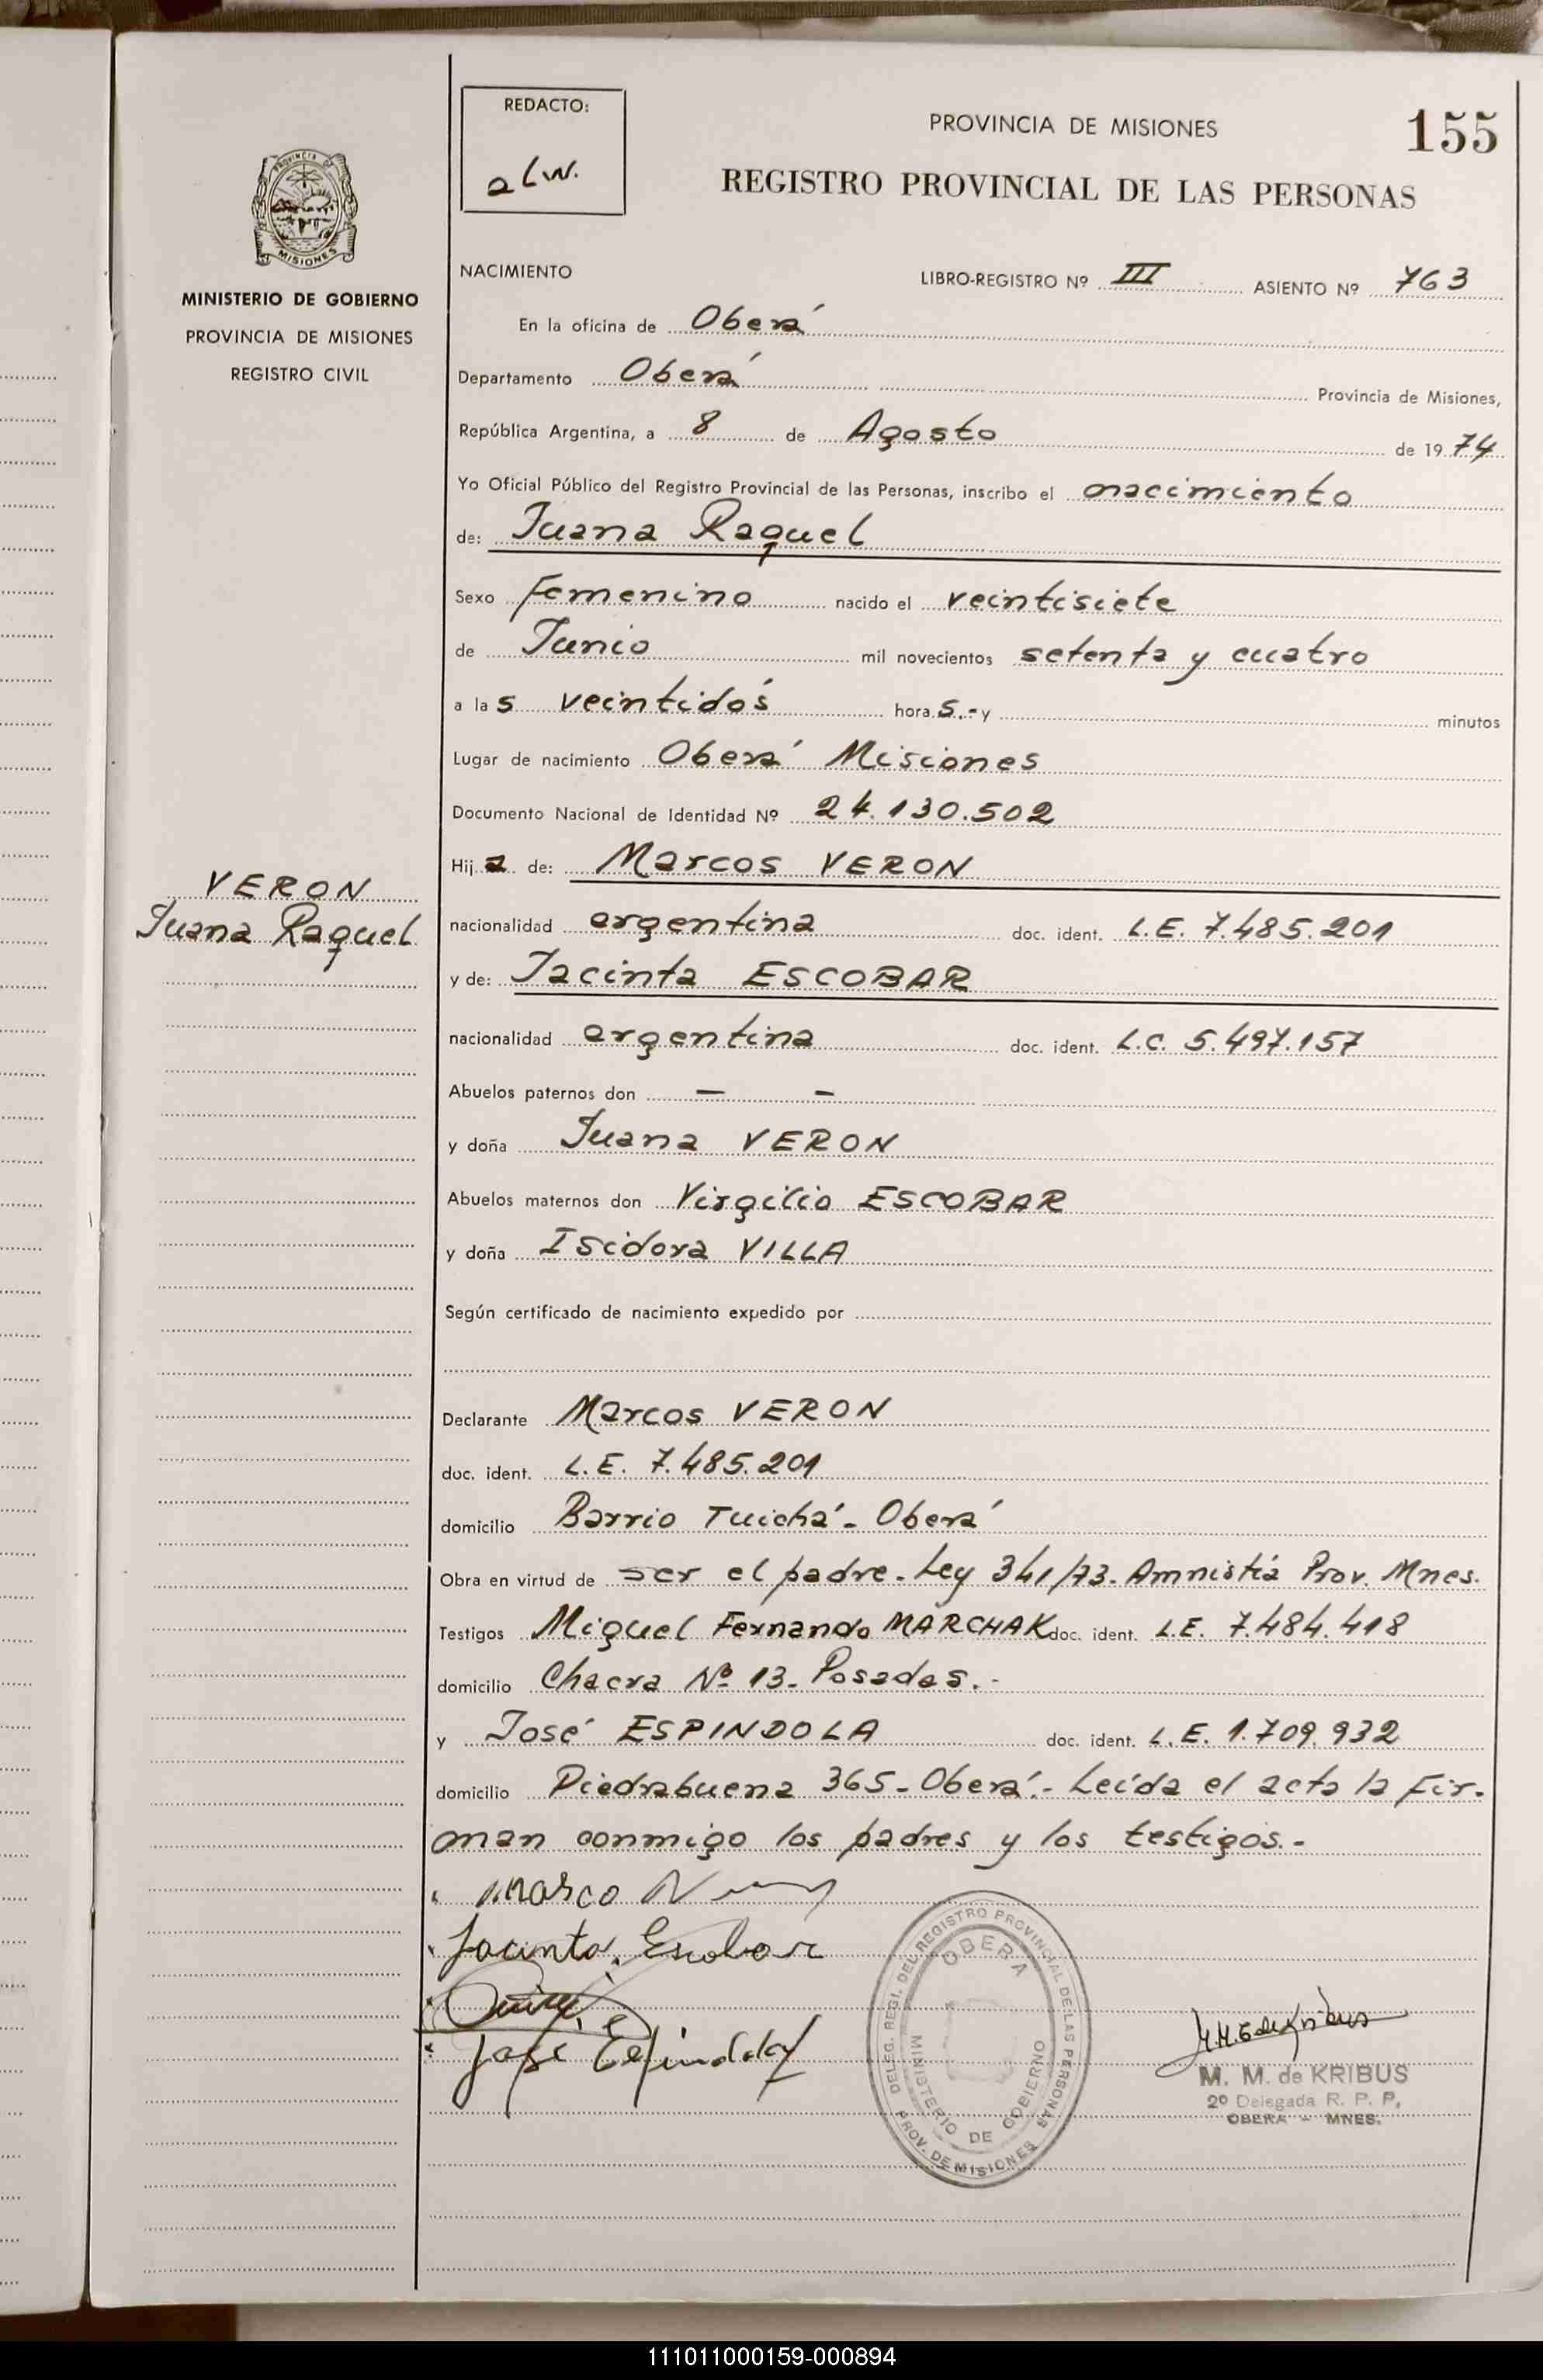 REDACTO:
alw.
PROVINCIA DE MISIONES
155
REGISTRO PROVINCIAL DE LAS PERSONAS
PROVINCIA DE
MISIONES
MINISTERIO DE GOBIERNO
PROVINCIA DE MISIONES
REGISTRO CIVIL
NACIMIENTO LIBRO-REGISTRO Nº III ASIENTO Nº 763
En la oficina de Oberá
Departamento Oberá Provincia de Misiones,
República Argentina, a 8 de Agosto de 1974
Yo Oficial Público del Registro Provincial de las Personas, inscribo el nacimiento
de: Juana Raquel
Sexo Femenino nacido el veintisiete
de Junio mil novecientos setenta y cuatro
a las veintidós horas.- y minutos
Lugar de nacimiento Oberá Misiones
Documento Nacional de Identidad Nº 24.130.502
Hija de: Marcos VERON
VERON
Juana Raquel
nacionalidad argentina doc. ident. L.E. 7.485.201
y de: Jacinta ESCOBAR
nacionalidad argentina doc. ident. L.C. 5.497.157
Abuelos paternos don — —
y doña Juana VERON
Abuelos maternos don Virgilio ESCOBAR
y doña Isidora VILLA
Según certificado de nacimiento expedido por
Declarante Marcos VERON
doc. ident. L.E. 7.485.201
domicilio Barrio Tuichá - Oberá
Obra en virtud de ser el padre. Ley 341/73. Amnistía Prov. Mnes.
Testigos Miguel Fernando MARCHAK doc. ident. L.E. 7.484.418
domicilio Chacra Nº 13. Posadas.-
y José ESPINDOLA doc. ident. L.E. 1.709.932
domicilio Piedrabuena 365 - Oberá.- Leída el acta la fir-
man conmigo los padres y los testigos.-
Marco
Jacinta Escobar
José Espindola
DELEG. REGI. DEL REGISTRO PROVINCIAL DE LAS PERSONAS
OBERA
MINISTERIO DE GOBIERNO
PROV. DE MISIONES
M. M. de KRIBUS
2º Delegada R. P. P.
OBERA - MNES.
111011000159-000894